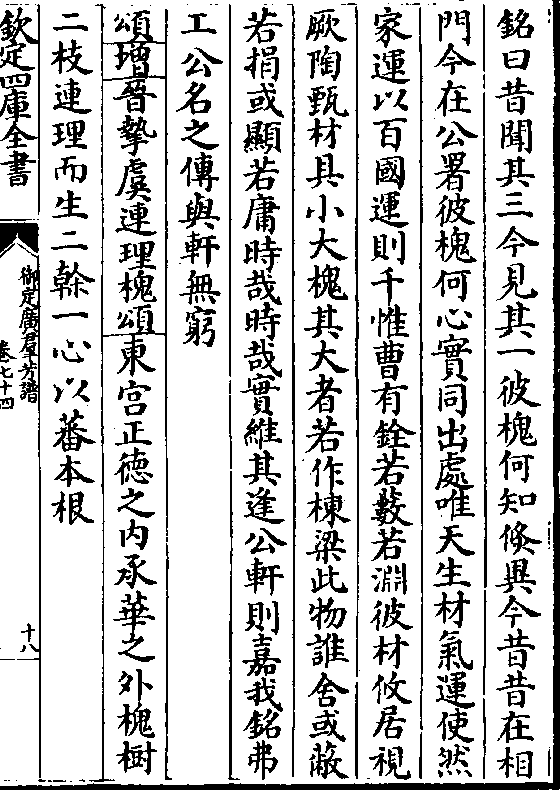 銘曰昔聞其三今見其一彼槐何知倐異今昔昔在相
門今在公署彼槐何心實同出處唯天生材氣運使然
家運以百國運則千惟曹有銓若藪若淵彼材攸居視
厥陶甄材具小大槐其大者若作棟梁此物誰舍或蔽
若捐或顯若庸時哉時哉實維其逢公軒則嘉我銘弗
工公名之傳與軒無窮
頌增晉摯虞連理槐頌東宫正徳之内承華之外槐樹
二枝連理而生二幹一心以蕃本根
欽定四庫全書
御定廣羣芳譜
卷七十四
十八